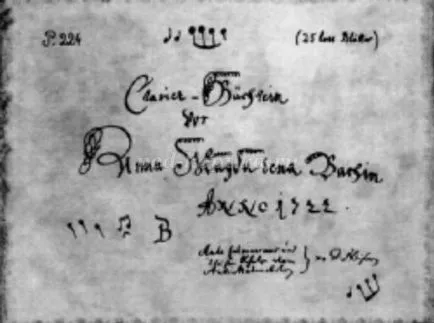 P. 224 (25 lose Blätter)
Clavier-Büchlein
vor
Anna Magdalena Bachin
ANNO 1722.
B